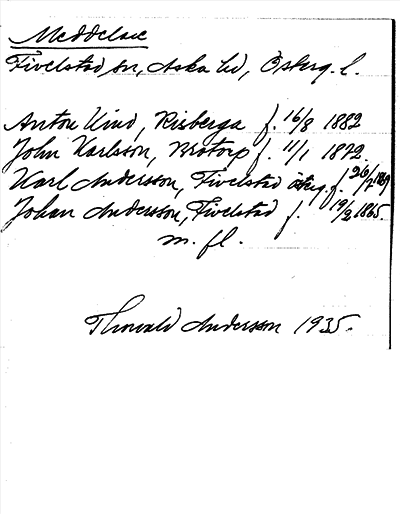 Meddelare
Fivelstad sn, Aska hd, Österg. l.
Anton Lind, Risberga f. 16/8 1882
John Karlsson, Brotorp f. 11/1 1872.
Karl Andersson, Fivelstad f. 26/7 1869
Johan Andersson, Fivelstad f. 19/2 1865.
m. fl.
Thorvald Andersson 1935.